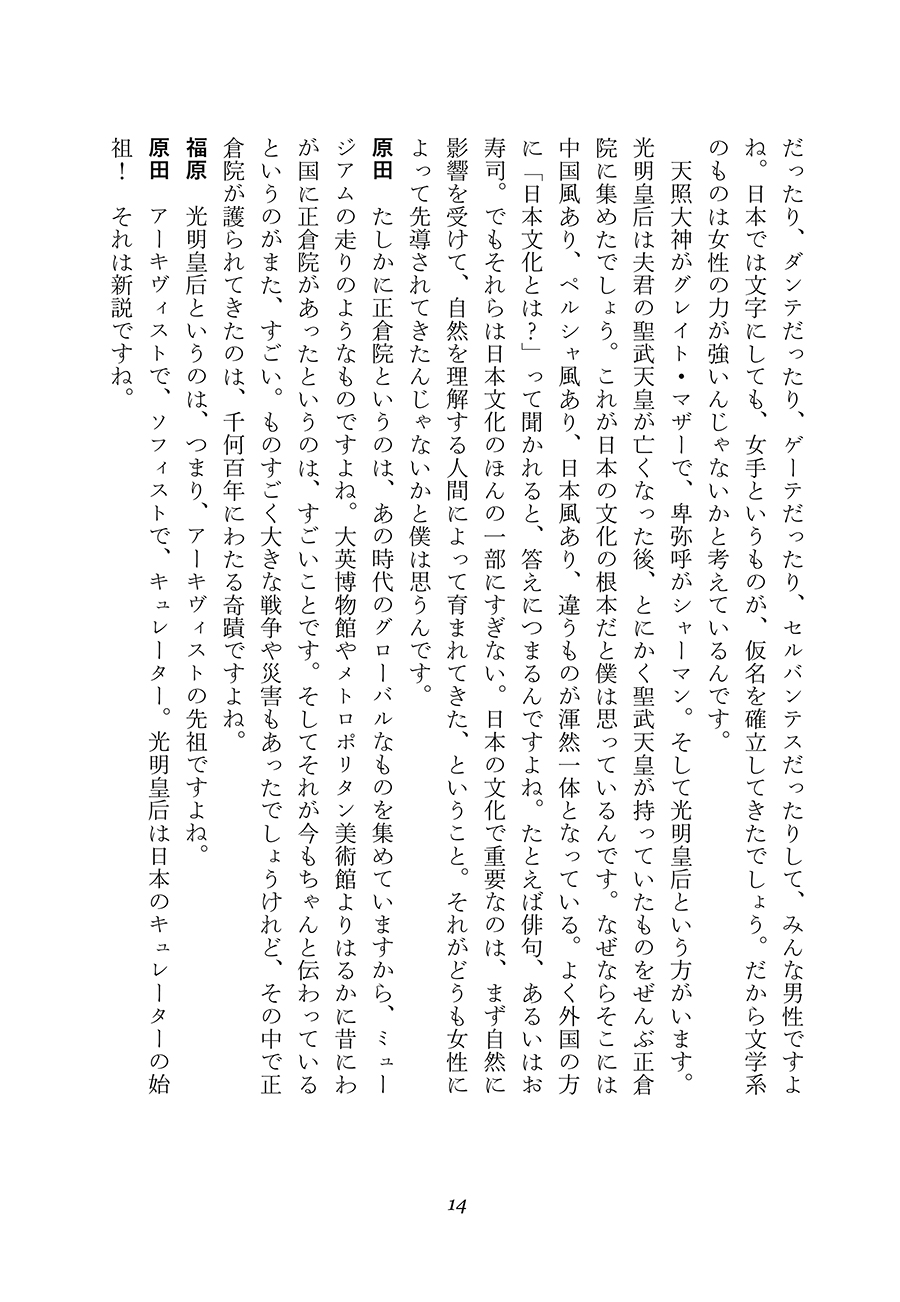 だったり、ダンテだったり、ゲーテだったり、セルバンテスだったりして、みんな男性ですよ
ね。日本では文字にしても、女手というものが、仮名を確立してきたでしょう。だから文学系
のものは女性の力が強いんじゃないかと考えているんです。
　天照大神がグレイト・マザーで、卑弥呼がシャーマン。そして光明皇后という方がいます。
光明皇后は夫君の聖武天皇が亡くなった後、とにかく聖武天皇が持っていたものをぜんぶ正倉
院に集めたでしょう。これが日本の文化の根本だと僕は思っているんです。なぜならそこには
中国風あり、ペルシャ風あり、日本風あり、違うものが渾然一体となっている。よく外国の方
に「日本文化とは？」って聞かれると、答えにつまるんですよね。たとえば俳句、あるいはお
寿司。でもそれらは日本文化のほんの一部にすぎない。日本の文化で重要なのは、まず自然に
影響を受けて、自然を理解する人間によって育まれてきた、ということ。それがどうも女性に
よって先導されてきたんじゃないかと僕は思うんです。
原田　たしかに正倉院というのは、あの時代のグローバルなものを集めていますから、ミュー
ジアムの走りのようなものですよね。大英博物館やメトロポリタン美術館よりはるかに昔にわ
が国に正倉院があったというのは、すごいことです。そしてそれが今もちゃんと伝わっている
というのがまた、すごい。ものすごく大きな戦争や災害もあったでしょうけれど、その中で正
倉院が護られてきたのは、千何百年にわたる奇蹟ですよね。
福原　光明皇后というのは、つまり、アーキヴィストの先祖ですよね。
原田　アーキヴィストで、ソフィストで、キュレーター。光明皇后は日本のキュレーターの始
祖！　それは新説ですね。
14